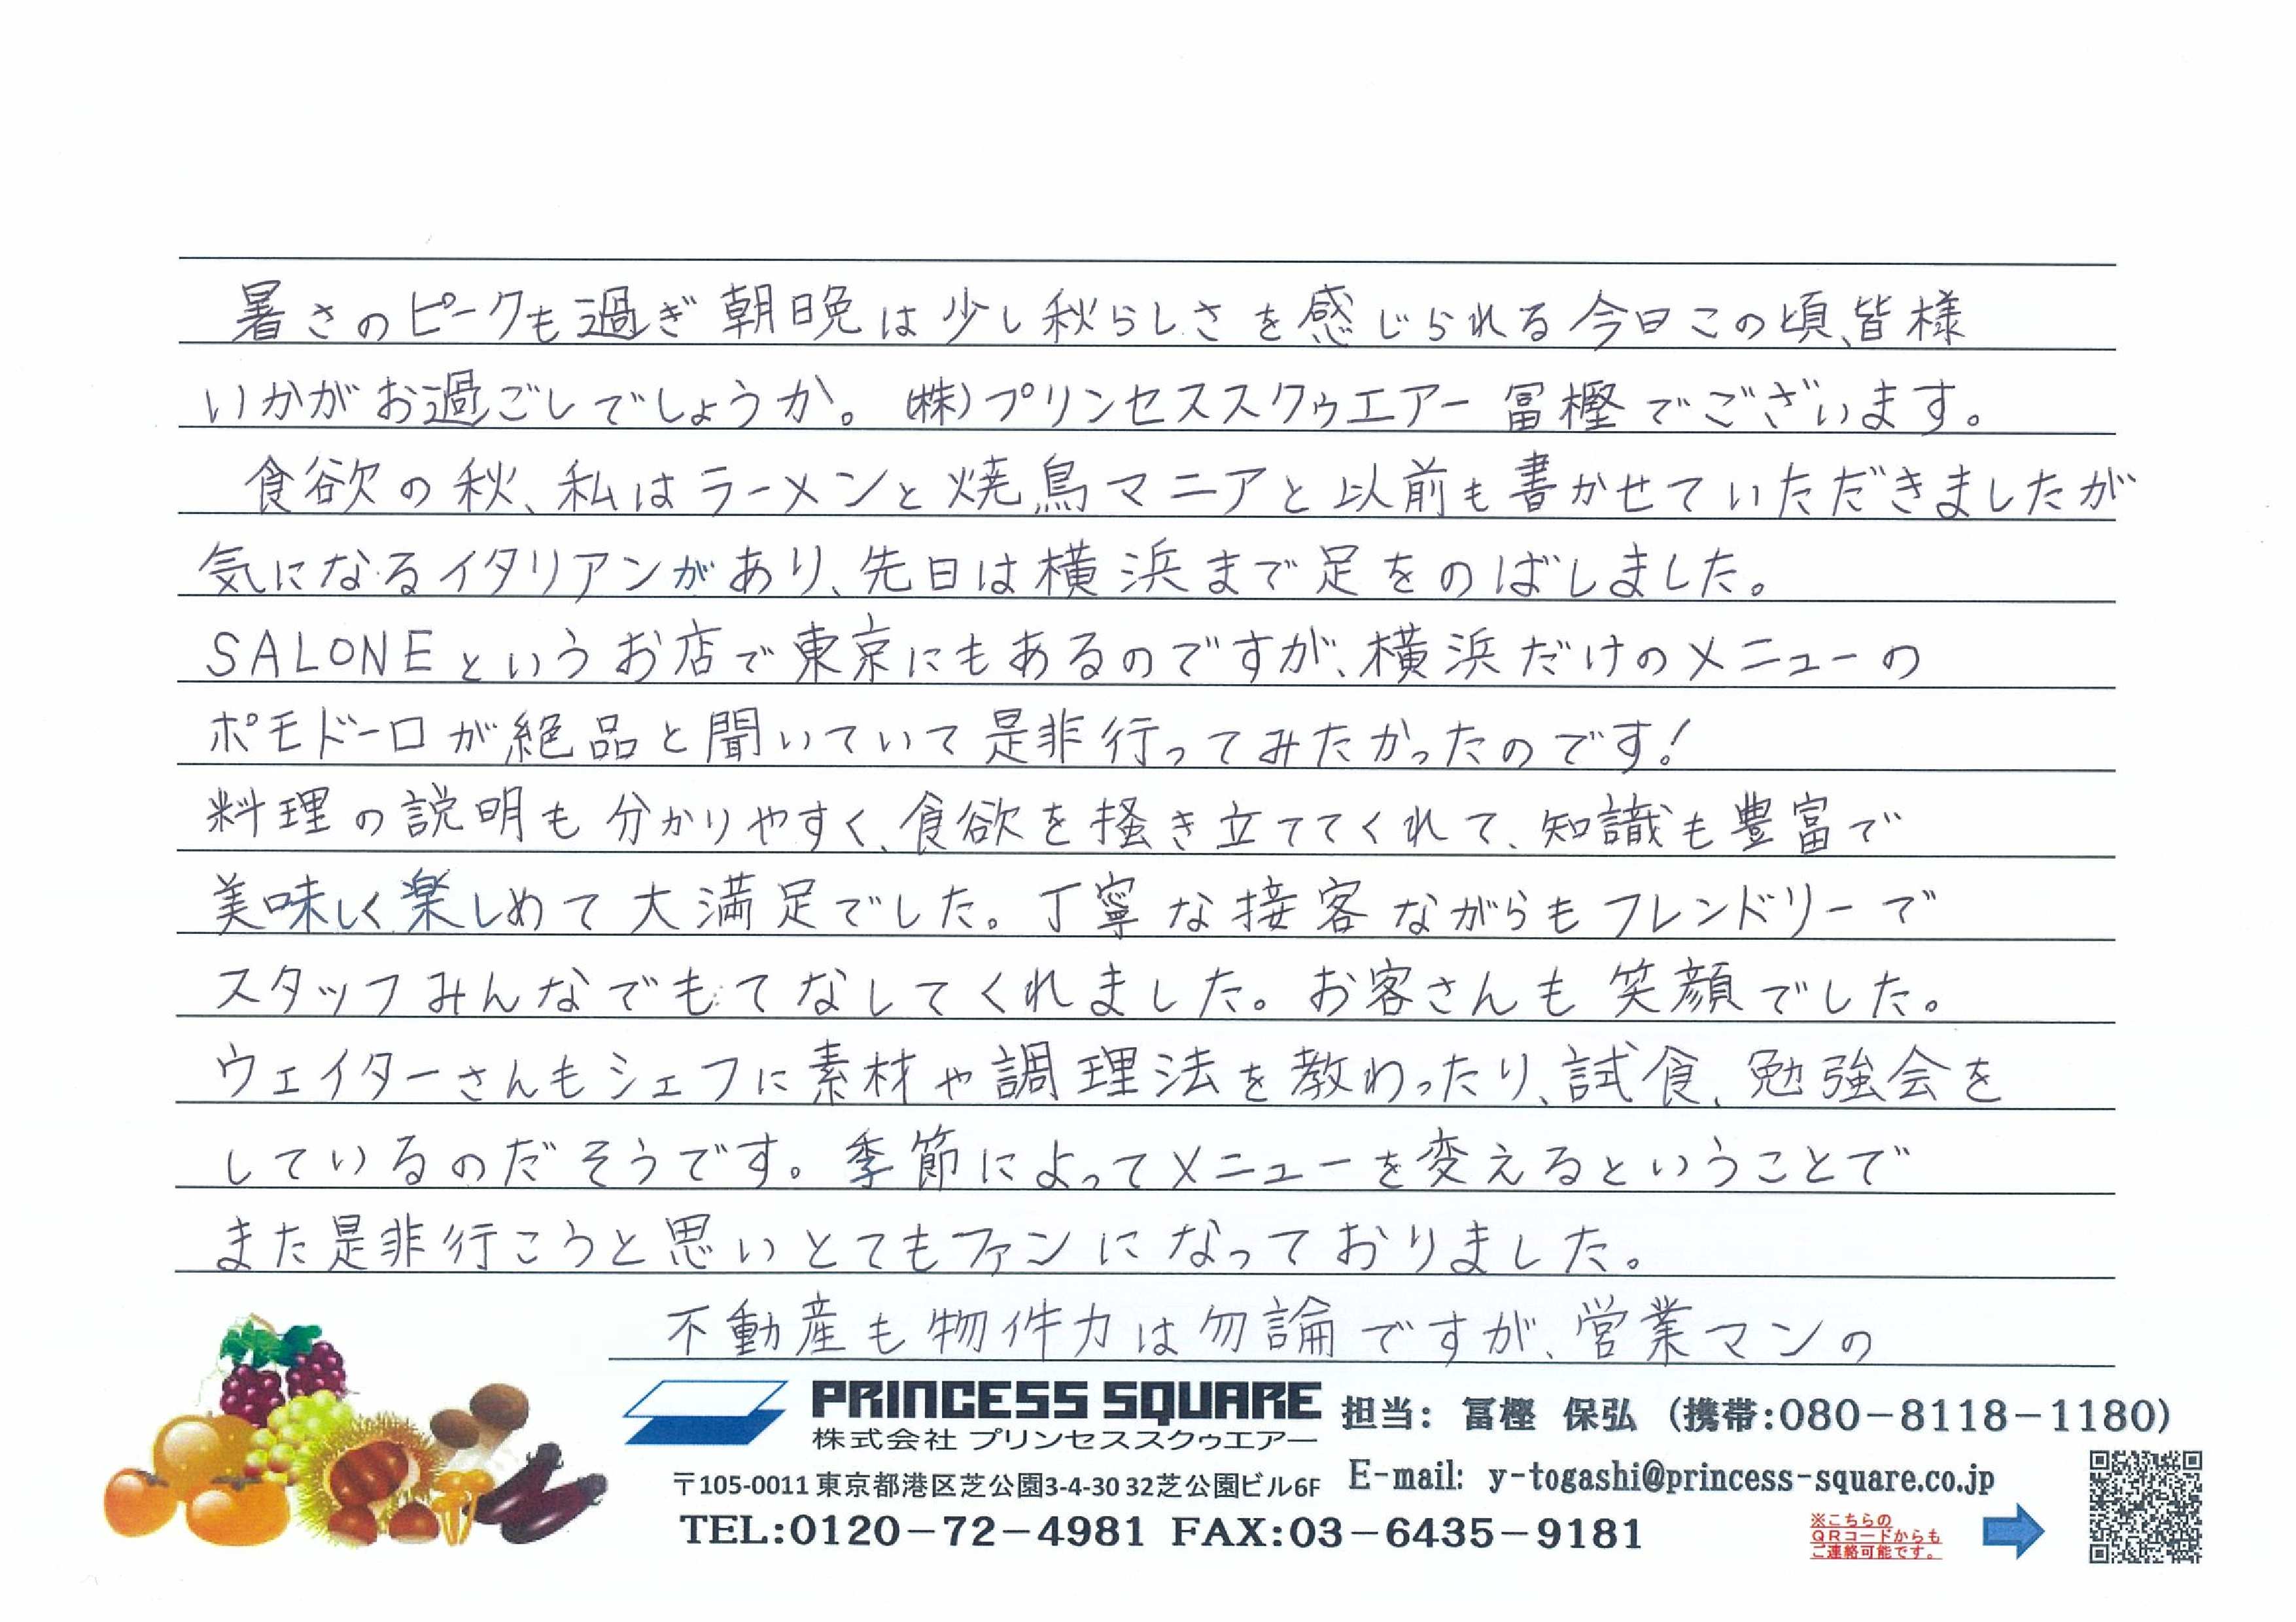 暑さのピークも過ぎ朝晩は少し秋らしさを感じられる今日この頃、皆様
いかがお過ごしでしょうか。(株)プリンセススクゥエアー冨樫でございます。
食欲の秋、私はラーメンと焼鳥マニアと以前も書かせていただきましたが
気になるイタリアンがあり、先日は横浜まで足をのばしました。
SALONEというお店で東京にもあるのですが、横浜だけのメニューの
ポモドーロが絶品と聞いていて是非行ってみたかったのです!
料理の説明も分かりやすく、食欲を掻き立ててくれて、知識も豊富で
美味しく楽しめて大満足でした。丁寧な接客ながらもフレンドリーで
スタッフみんなでもてなしてくれました。お客さんも笑顔でした。
ウェイターさんもシェフに素材や調理法を教わったり、試食、勉強会を
しているのだそうです。季節によってメニューを変えるということで
また是非行こうと思いとてもファンになっておりました。
不動産も物件力は勿論ですが、営業マンの
PRINCESS SQUARE
株式会社 プリンセススクゥエアー
担当: 冨樫 保弘 (携帯:080-8118-1180)
〒105-0011 東京都港区芝公園3-4-30 32芝公園ビル6F
E-mail: y-togashi@princess-square.co.jp
TEL:0120-72-4981 FAX:03-6435-9181
※こちらの
QRコードからも
ご連絡可能です。